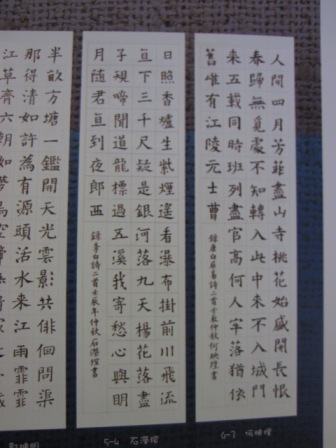 人間四月芳菲盡山寺桃花始盛開長恨
春歸無覓處不知轉入此中來不入城門
來五載同時班列盡官高何人牢落猶依
舊唯有江陵元士曹
錄唐白居易詩二首壬辰仲秋何映煌書
6-7 何映煌
日照香爐生紫煙遙看瀑布掛前川飛流
直下三千尺疑是銀河落九天楊花落盡
子規啼聞道龍標過五溪我寄愁心與明
月隨君直到夜郎西
錄李白詩二首壬辰年仲秋石瀅煌書
5-6 石瀅煌
半畝方塘一鑑開天光雲影共徘徊問渠
那得清如許為有源頭活水來江雨霏霏
江草齊六朝如夢鳥空啼